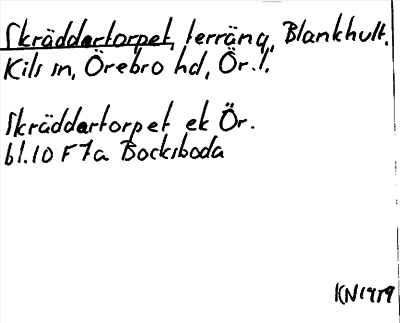 Skräddartorpet, terräng, Blankhult.
Kils sn, Örebro hd, Ör.l.
Skräddartorpet ek Ör.
bl.10 F7a Bocksboda
KN1979